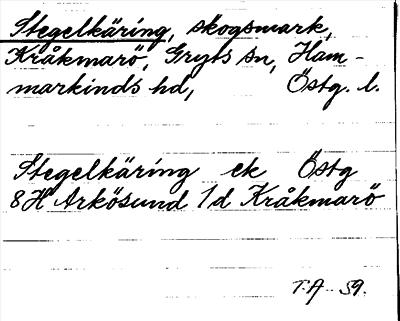 Stegelkäring, skogsmark,
Kråkmarö, Gryts sn, Ham-
markinds hd, Östg. l.
Stegelkäring ek Östg
8H Arkösund 1d Kråkmarö
T.A. 59.